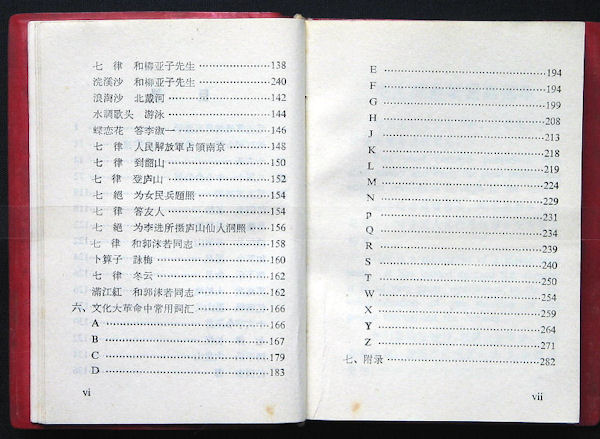 七 律 和柳亚子先生……138
浣溪沙 和柳亚子先生……240
浪淘沙 北戴河……142
水調歌头 游泳……144
蝶恋花 答李淑一……146
七 律 人民解放軍占領南京……148
七 律 到韶山……150
七 律 登庐山……152
七 絕 为女民兵題照……154
七 律 答友人……154
七 絕 为李进所摄庐山仙人洞照……156
七 律 和郭沫若同志……158
卜算子 詠梅……160
七 律 冬云……162
滿江紅 和郭沫若同志……162
六、文化大革命中常用詞汇……166
A……166
B……167
C……179
D……183
vi
E……194
F……194
G……199
H……208
J……213
K……218
L……219
M……224
N……229
P……231
Q……234
R……239
S……240
T……250
W……254
X……259
Y……264
Z……271
七、附录……282
vii